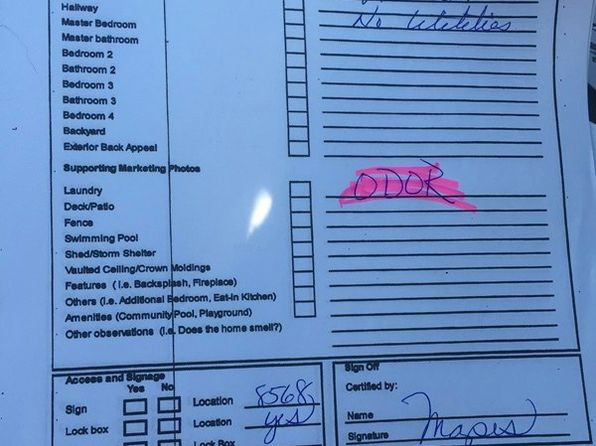 Hallway
Master Bedroom
No Utilities
Master bathroom
Bedroom 2
Bathroom 2
Bedroom 3
Bathroom 3
Bedroom 4
Backyard
Exterior Back Appeal
Supporting Marketing Photos
ODOR
Laundry
Deck/Patio
Fence
Swimming Pool
Shed/Storm Shelter
Vaulted Ceiling/Crown Moldings
Features (i.e. Backsplash, Fireplace)
Others (i.e. Additional Bedroom, Eat-in Kitchen)
Amenities (Community Pool, Playground)
Other observations (i.e. Does the home smell?)
Access and Signage
Yes No
Sign Location 8568
Lock box Location yes
Lock Box
Sign Off
Certified by:
Name
Signature Mapes